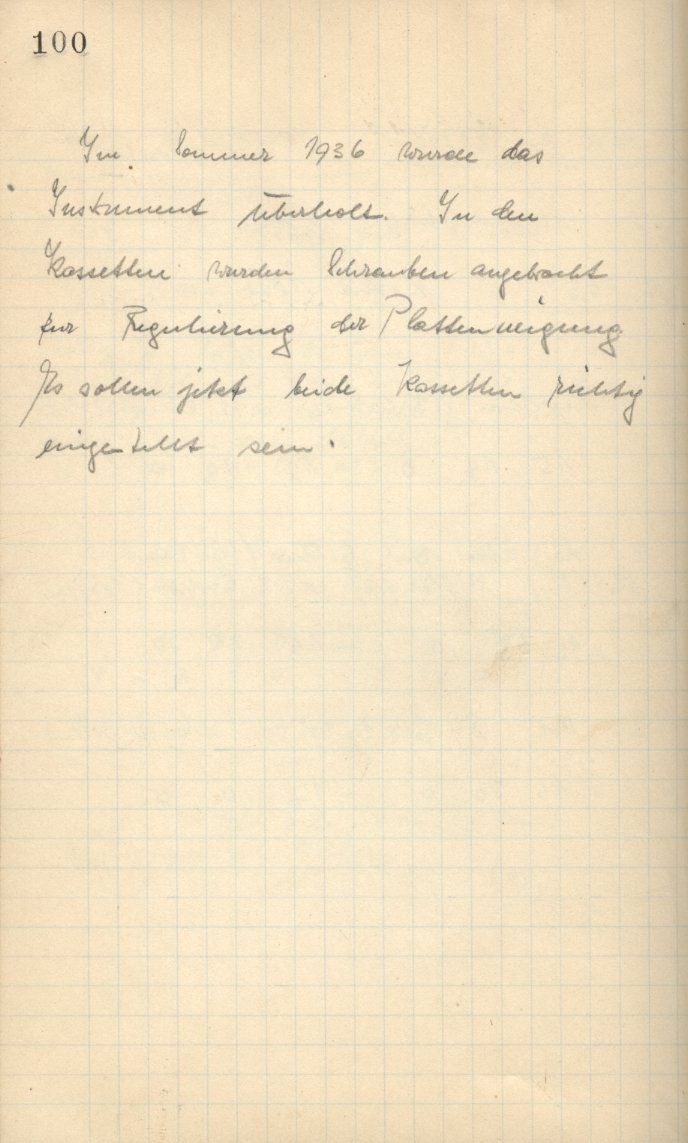 100
Im Sommer 1936 wurde das
Instrument überholt. In den
Kassetten wurden Schrauben angebracht
zur Regulierung der Plattenneigung.
Es sollen jetzt beide Kassetten richtig
eingestellt sein.